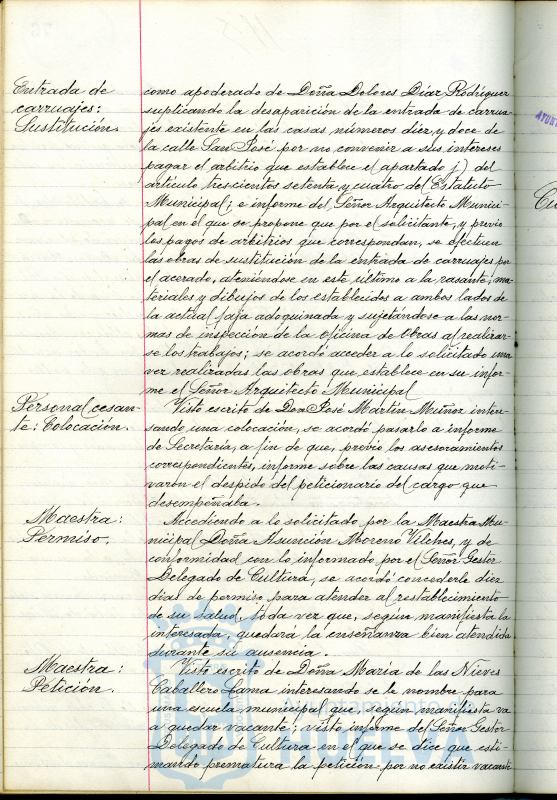 Entrada de
carruajes:
Sustitución.
como apoderado de Doña Dolores Díaz Rodríguez
suplicando la desaparición de la entrada de carrua-
jes existente en las casas números diez y doce de
la calle San José por no convenir a sus intereses
pagar el arbitrio que establece el apartado j) del
artículo trescientos setenta y cuatro del Estatuto
Municipal; e informe del Señor Arquitecto Munici-
pal en el que se propone que por el solicitante, y previo
los pagos de arbitrios que correspondan, se efectuen
las obras de sustitución de la entrada de carruajes por
el acerado, ateniéndose en este último a la rasante, ma-
teriales y dibujos de los establecidos a ambos lados de
la actual faja adoquinada y sujetándose a las nor-
mas de inspección de la oficina de Obras al realizar-
se los trabajos; se acordó acceder a lo solicitado una
vez realizadas las obras que establece en su infor-
me el Señor Arquitecto Municipal
Personal cesan-
te: Colocación.
Visto escrito de Don José Martín Muñoz intere-
sando una colocación, se acordó pasarlo a informe
de Secretaría, a fin de que, previo los asesoramientos
correspondientes, informe sobre las causas que moti-
varon el despido del peticionario del cargo que
desempeñaba.
Maestra:
Permiso.
Accediendo a lo solicitado por la Maestra Mu-
nicipal Doña Asunción Moreno Vilches, y de
conformidad con lo informado por el Señor Gestor
Delegado de Cultura, se acordó concederle diez
días de permiso para atender al restablecimiento
de su salud, toda vez que, según manifiesta la
interesada, quedará la enseñanza bien atendida
durante su ausencia.
Maestra:
Petición.
Visto escrito de Doña María de las Nieves
Caballero Lama interesando se le nombre para
una escuela municipal que, según manifiesta va
a quedar vacante; visto informe del Señor Gestor
Delegado de Cultura en el que se dice que esti-
mando prematura la petición por no existir vacante